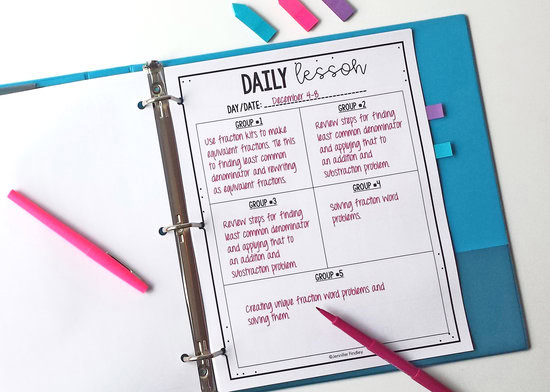 DAILY lesson
DAY/DATE: December 4-8
GROUP #1
Use fraction kits to make
equivalent fractions. Tie this
to finding least common
denominator and rewriting
as equivalent fractions.
GROUP #2
Review steps for finding
least common denominator
and applying that to
an addition and
subtraction problem.
GROUP #3
Review steps for finding
least common denominator
and applying that to
an addition and
subtraction problem.
GROUP #4
Solving fraction word
problems.
GROUP #5
Creating unique fraction word problems and
solving them.
©Jennifer Findley